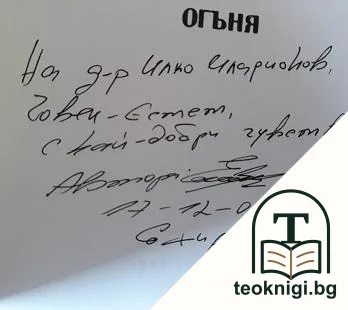 ОГЪНЯ
На д-р Илко Иларионов,
Човек-Естет,
с най-добри чувст
Авторът:
17-12-0
Соф
T
teoknigi.bg